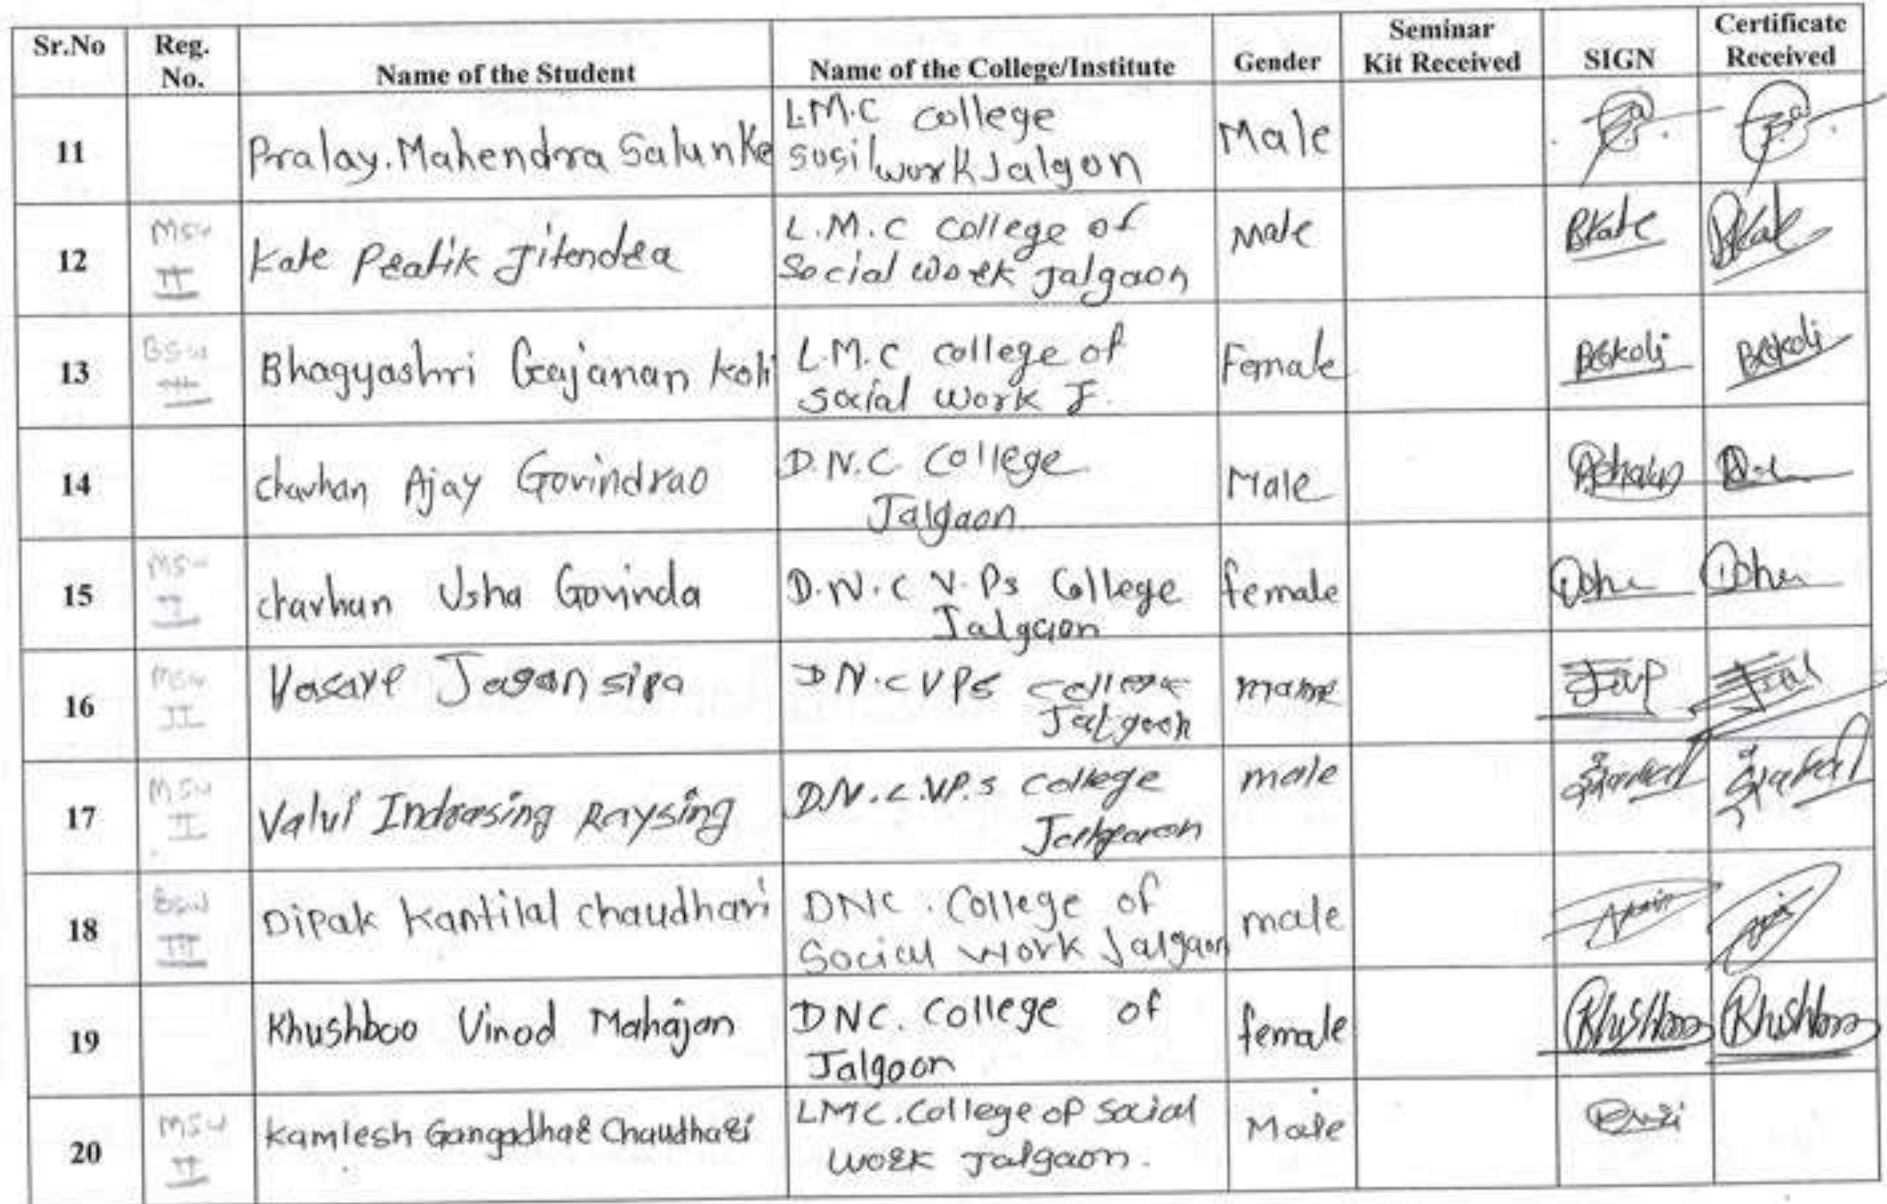 Sr.No Reg. No. Name of the Student Name of the College/Institute Gender Seminar Kit Received SIGN Certificate Received
11 Pralay. Mahendra Salunke L.M.C college
sosil work Jalgon Male
12 MSW II Kate Pratik Jitendra L.M.C College of
Social Work Jalgaon Male BKate BKate
13 BSW II Bhagyashri Gajanan koli L.M.C college of
social work J. Female BGKoli BGKoli
14 Chavhan Ajay Govindrao D.N.C. College
Jalgaon Male
15 MSW I chavhan Usha Govinda D.N.C V.Ps College
Jalgaon female
16 MSW II Vasave Jagan sipa D N.C VPS college
Jalgaon mame
17 MSW I Valvi Indrasing Raysing D.N.C.VP.S College
Jalgaon male
18 BSW III Dipak Kantilal chaudhari DNC. College of
Social Work Jalgaon male
19 Khushboo Vinod Mahajan DNC. College of
Jalgaon female Khushboo Khushboo
20 MSW II Kamlesh Gangadhar Chaudhari LMC. College of Social
Work Jalgaon. Male